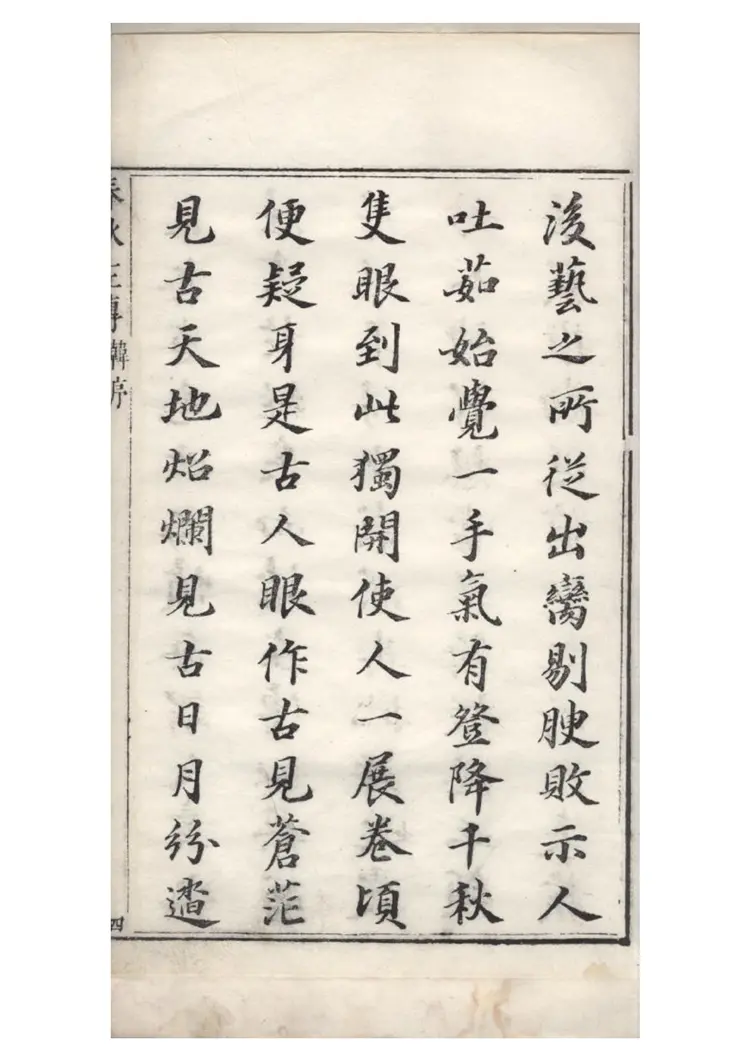 後藝之所從出臠剔腴敗示人
吐茹始覺一手氣有登降千秋
隻眼到此獨開使人一展卷頃
便疑身是古人眼作古見蒼茫
見古天地炤爛見古日月紛遝
春秋左傳 韓序 四